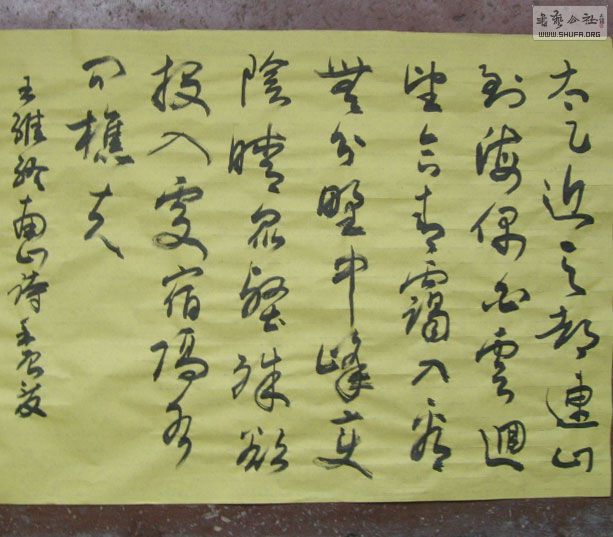 太乙近天都連山
到海偶白雲迴
望合青靄入看
無分野中峰變
陰晴眾壑殊欲
投人處宿隔水
問樵夫
王維終南山詩
書藝公社
WWW.SHUFA.ORG